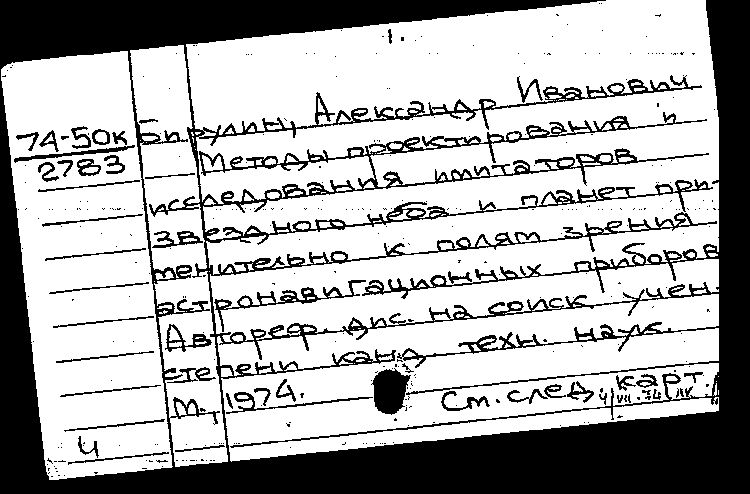 1.
74-50к Бирулин, Александр Иванович
2783 Методы проектирования и
исследования имитаторов
звездного неба и планет при-
менительно к полям зрения
астронавигационных приборов
Автореф. дис. на соиск. учен.
степени канд. техн. наук.
М., 1974.
См. след. карт.
4